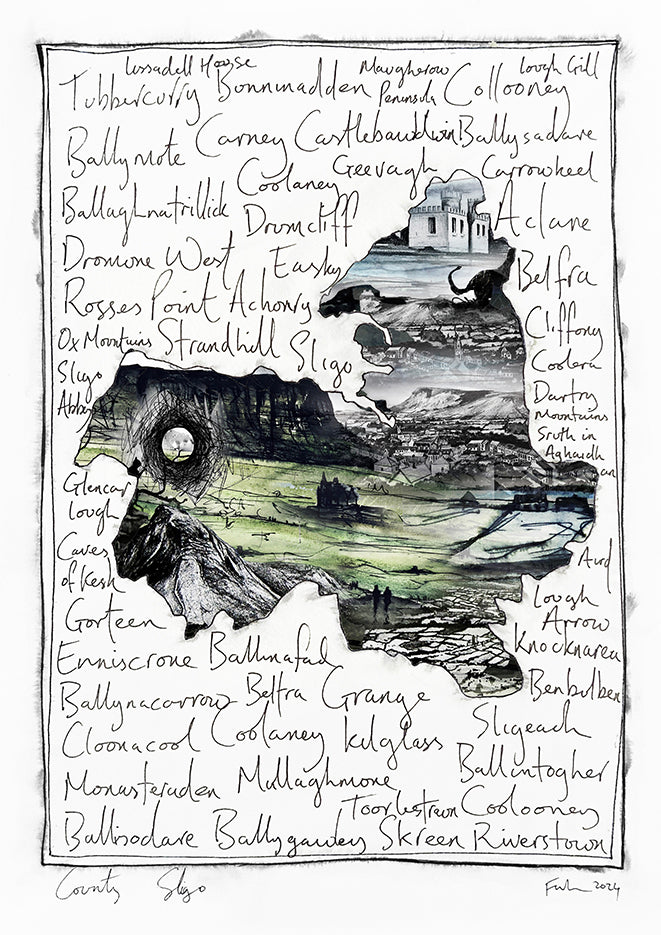 Lissadell House Maugherow Peninsula Lough Gill
Tubbercurry Bonninadden Collooney
Ballymote Carney Castlebawdwin Ballysadare
Coolaney Geevagh Carrowheel
Ballaghnatrillick Dromcliff Aclane
Dromore West Easky Belfra
Rosses Point Achonry Cliffony
Ox Mountains Strandhill Sligo Coolera
Sligo
Abbey
Dartry
Mountains
Sruth in
Aghaidh
an
Aird
Glencar
Lough
Caves
of Kesh
Lough
Arrow
Gorteen Knocknarea
Enniscrone Ballinafad Benbulben
Ballynacarrow Beltra Grange Sligeach
Cloonacool Coolaney Kilglass Ballintogher
Monasteraden Mullaghmore
Toorlestraun Coolooney
Ballisodare Ballygawley Skreen Riverstown
County Sligo 2024